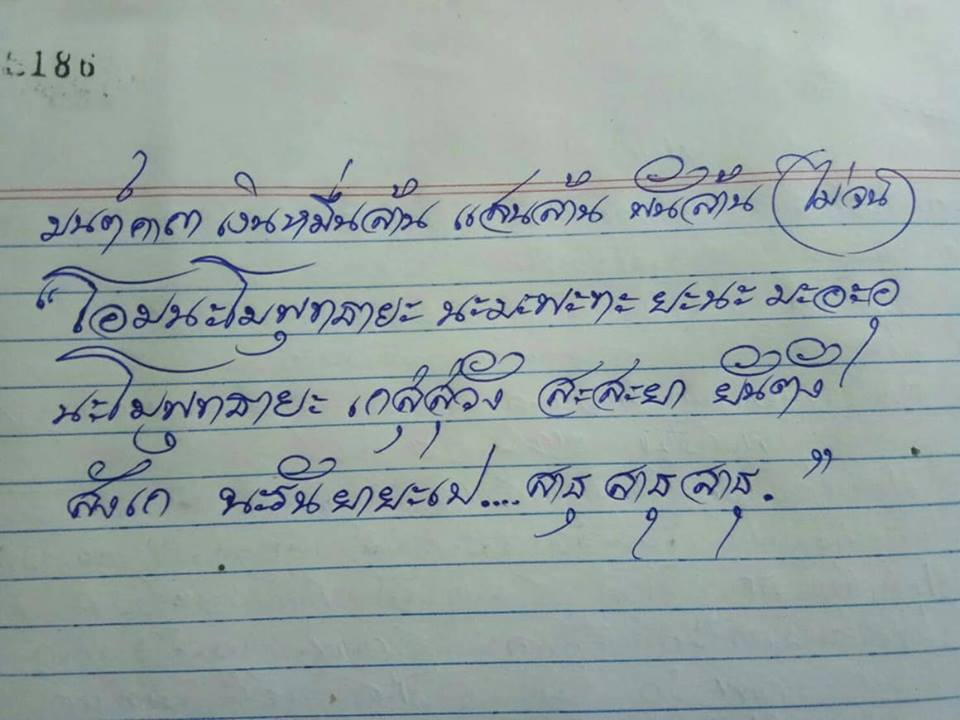 186
มนต์คาถา เงินหมื่นล้าน แสนล้าน พันล้าน ไม่จน
"โอมนะโมพุทธายะ นะมะพะทะ ยะนะ มะอะอุ
นะโมพุทธายะ เกสุสุวัง สะสะยา ยันตัง
สังเก นะรันยายะเป....สาธุ สาธุ สาธุ."